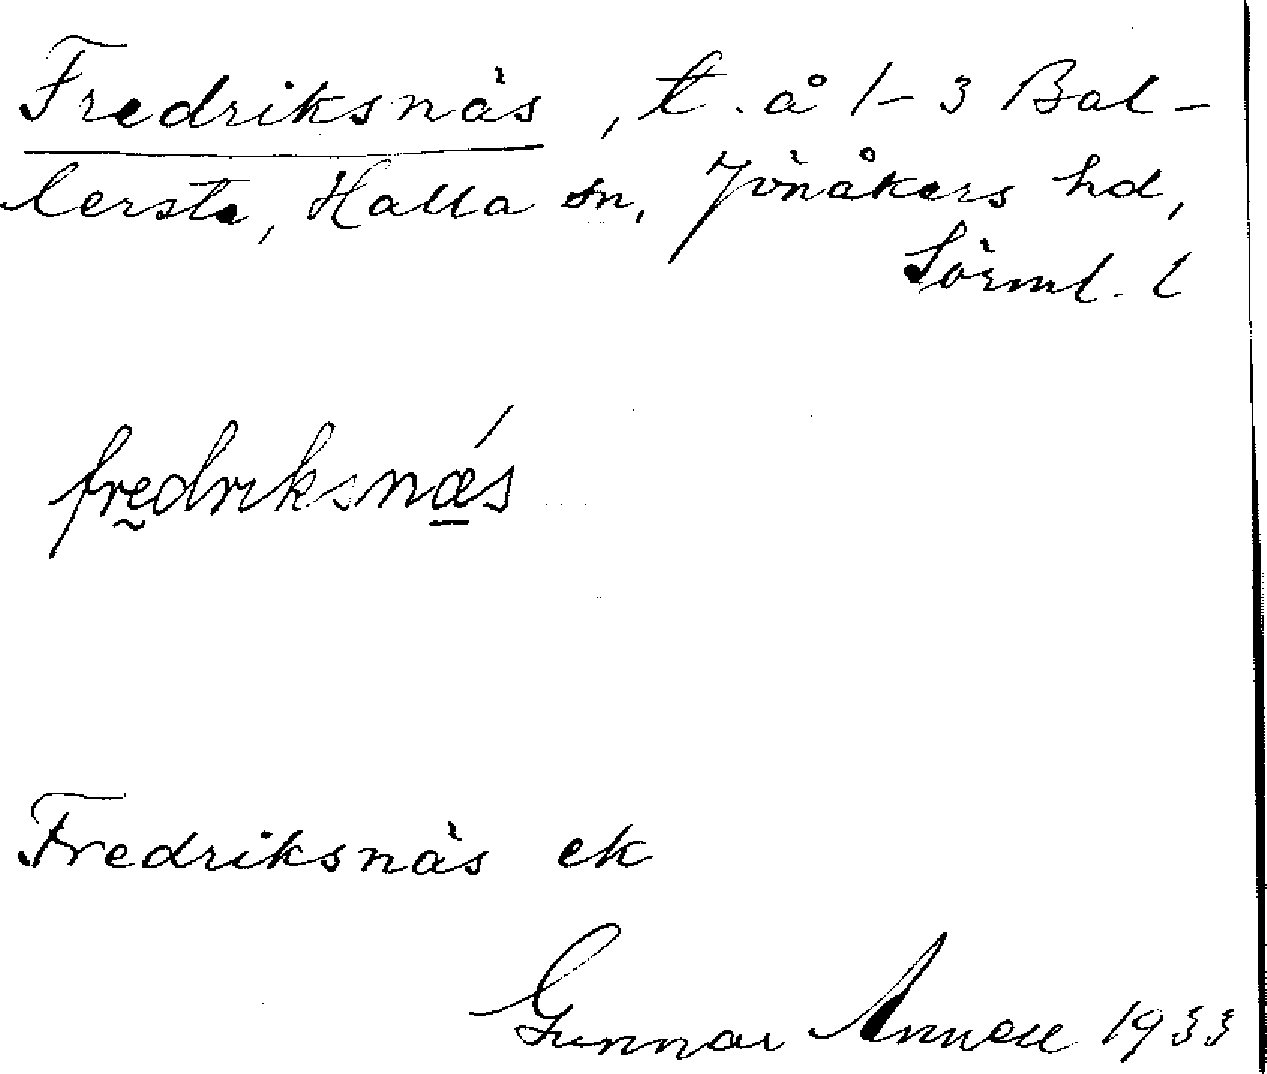 Fredriksnäs, t. å 1-3 Bal-
lersta, Halla sn, Jönåkers hd,
Sörml. l
fredriksnǽs
Fredriksnäs ek
Gunnar Annell 1933